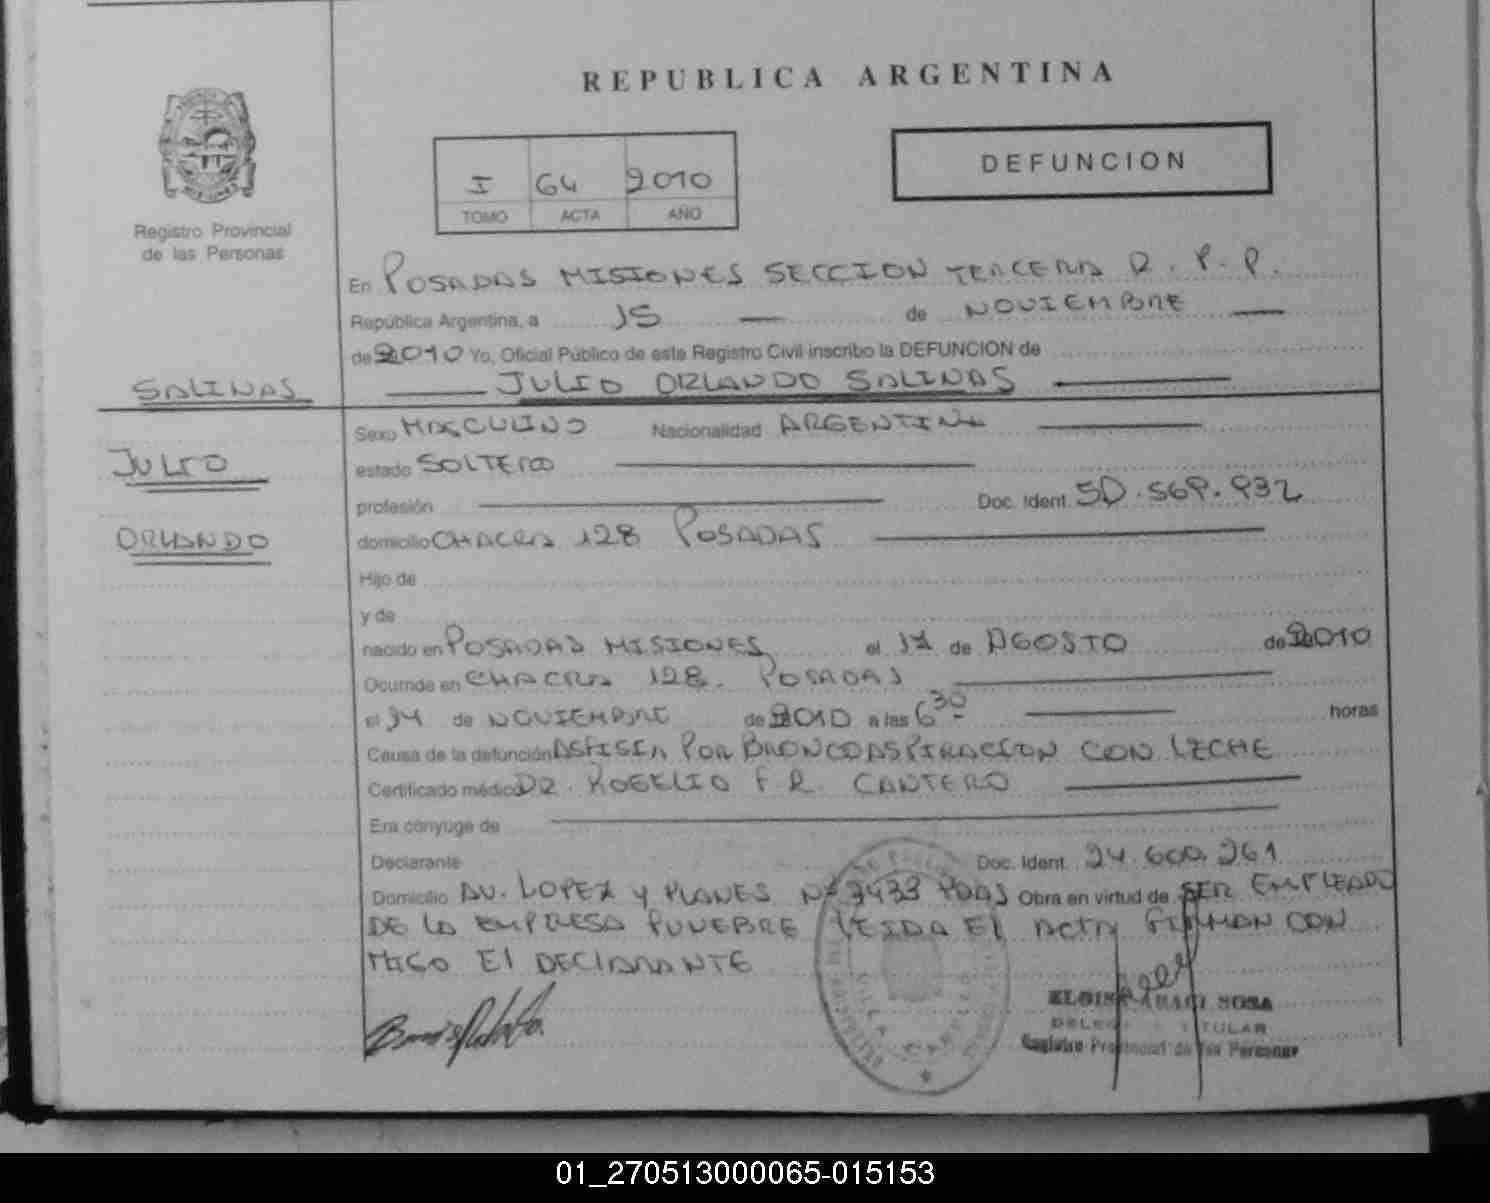 REPUBLICA ARGENTINA
Registro Provincial
de las Personas
I 64 2010
TOMO ACTA AÑO
DEFUNCION
En POSADAS MISIONES SECCION TERCERA R. P. P.
República Argentina, a 15 — de NOVIEMBRE —
de 2010 Yo, Oficial Público de este Registro Civil inscribo la DEFUNCION de
SALINAS
JULIO ORLANDO SALINAS
JULIO
ORLANDO
Sexo MASCULINO Nacionalidad ARGENTINA
estado SOLTERO
profesión Doc. Ident. 50.569.932
domicilio CHACRA 128 POSADAS
Hijo de
y de
nacido en POSADAS MISIONES el 17 de AGOSTO de 2010
Ocurrida en CHACRA 128. POSADAS
el 14 de NOVIEMBRE de 2010 a las 6 30 horas
Causa de la defunción ASFISIA POR BRONCOASPIRACION CON LECHE
Certificado médico DR. ROGELIO F. R. CANTERO
Era cónyuge de
Declarante Doc. Ident. 24.600.261
Domicilio AV. LOPEZ Y PLANES Nº 3433 PDAS Obra en virtud de SER EMPLEADO
DE LA EMPRESA FUNEBRE LEIDA EL ACTA FIRMAN CON
MIGO El DEClARANTE
SOSA
TITULAR
Registro Provincial de las Personas
01_270513000065-015153